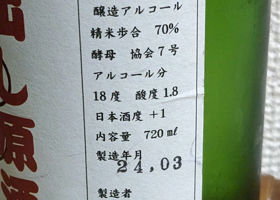 醸造アルコール
精米歩合 70%
酵母 協会7号
アルコール分
18度 酸度1.8
日本酒度+1
内容量 720㎖
製造年月
24,03
製造者
原酒